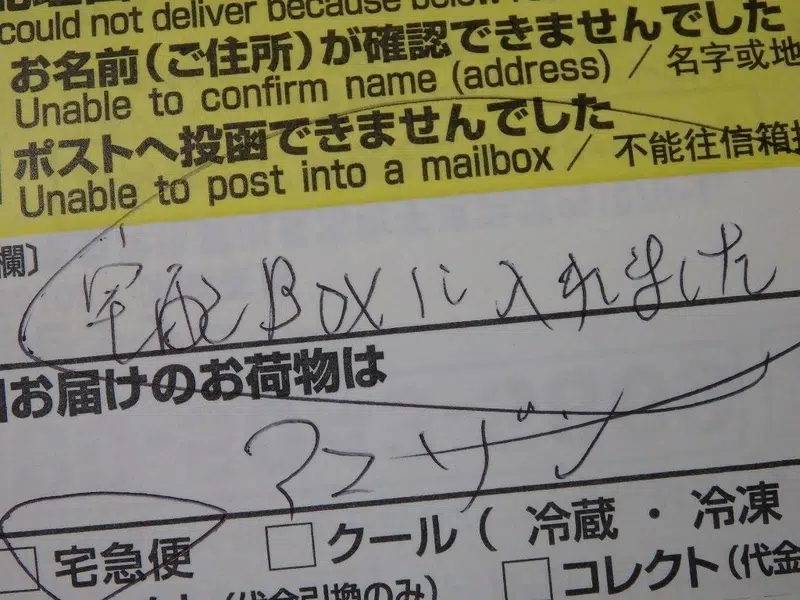 could not deliver because below re
お名前（ご住所）が確認できませんでした
Unable to confirm name (address) / 名字或地
ポストへ投函できませんでした
Unable to post into a mailbox / 不能往信箱投
欄〕
宅配BOXに入れました
お届けのお荷物は
アマゾン
宅急便
クール（ 冷蔵 ・ 冷凍
コレクト（代金
（代金引換のみ）